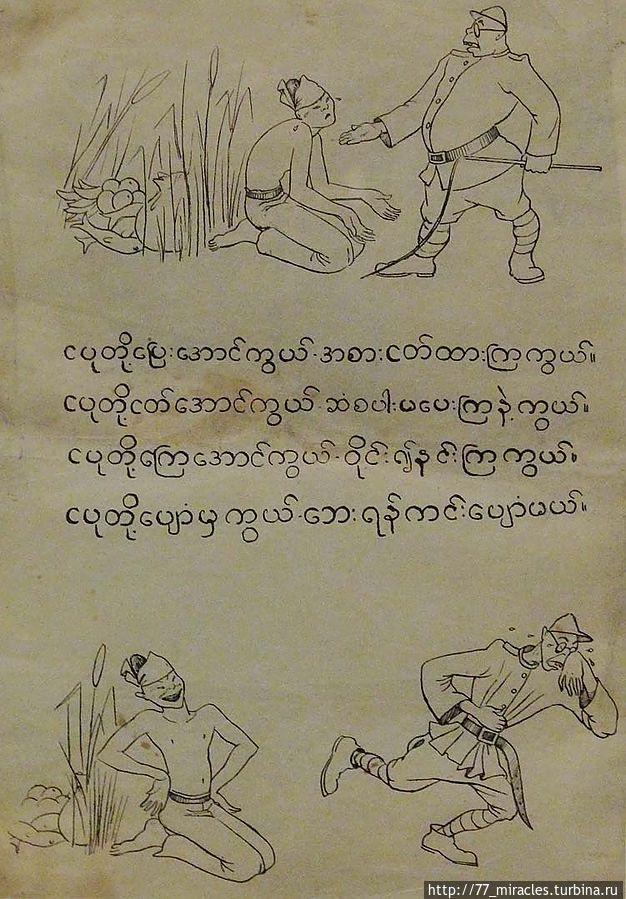 ငပုတို့ပြေးအောင်ကွယ်·အစားငတ်ထားကြကွယ်။
ငပုတို့ငတ်အောင်ကွယ်·ဆံစပါးမပေးကြနဲ့ကွယ်။
ငပုတို့ကြေအောင်ကွယ်·ဝိုင်း၍နှင်းကြကွယ်။
ငပုတို့ပျောံမှကွယ်·ဘေးရန်ကင်းပျောံမယ်။
http://77_miracles.turbina.ru